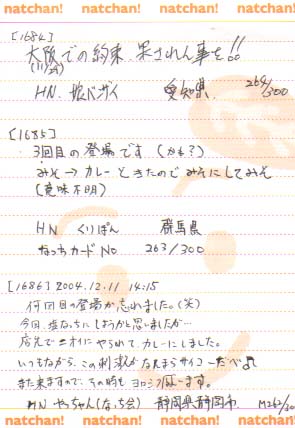 natchan! natchan! natchan! natchan!
[1684]
大阪での約束、果されん事を!!
HN. 娘バンザイ 愛知県 264/300
[1685]
3回目の登場です(かも?)
みそ→カレーときたのでみそにしてみそ
(意味不明)
HN くりぽん 群馬県
なっちカードNo 263/300
[1686] 2004.12.11 14:15
何回目の登場か忘れました。(笑)
今回、塩なっちにしようかと思いましたが…
店先でニオイにやられて、カレーにしました。
いつもながら、この刺激がなんまらサイコーだべ♬
また来ますので、その時もヨロシク願います。
HN やっちゃん(なっち会) 静岡県静岡市 M262/30
natchan! natchan! natchan! natchan!